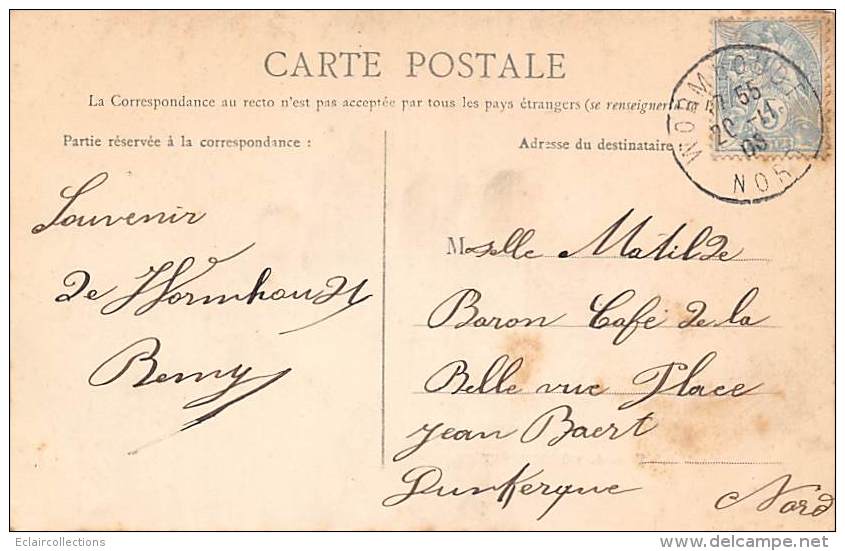 CARTE POSTALE
La Correspondance au recto n'est pas acceptée par tous les pays étrangers (se renseigner à
Partie réservée à la correspondance :
Adresse du destinataire
WORMHOUDT
NORD
Souvenir
de Wormhoudt
Remy
Mselle Matilde
Baron Café de la
Belle vue Place
jean Baert
Dunkerque
Nord
Eclaircollections
www.delcampe.net